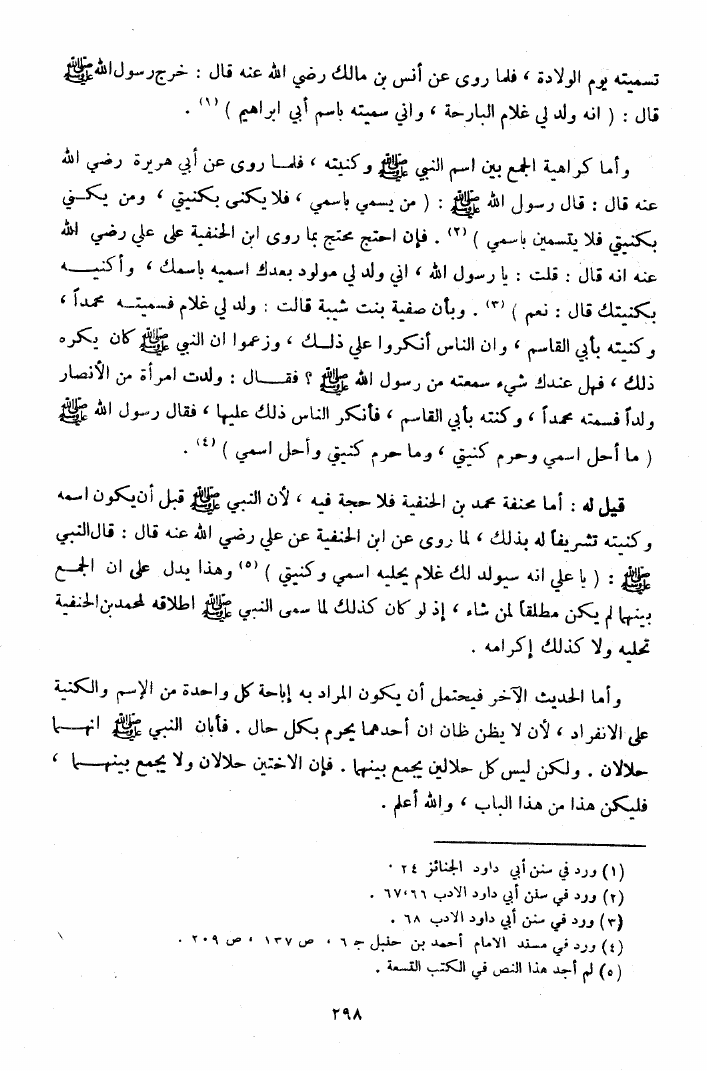 تسميته يوم الولادة ، فلما روى عن أنس بن مالك رضي الله عنه قال : خرج رسول الله ﷺ
قال : ( انه ولد لي غلام البارحة ، واني سميته باسم أبي ابراهيم ) (١) .
وأما كراهية الجمع بين اسم النبي ﷺ وكنيته ، فلمـا روى عن أبي هريرة رضي الله
عنه قال : قال رسول الله ﷺ : ( من يسمي باسمي ، فلا يكنى بكنيتي ، ومن يكـني
بكنيتي فلا يتسمين باسمي ) (٢) . فإن احتج محتج بما روى ابن الحنفية على علي رضي الله
عنه انه قال : قلت : يا رسول الله ، اني ولد لي مولود بعدك اسميه باسمك ، وأكنيـه
بكنيتك قال : نعم ) (٣) . وبأن صفية بنت شيبة قالت : ولد لي غلام فسميتـه محمداً ،
وكنيته بأبي القاسم ، وان الناس أنكروا علي ذلـك ، وزعموا ان النبي ﷺ كان يكره
ذلك ، فهل عندك شيء سمعته من رسول الله ﷺ ؟ فقـال : ولدت امرأة من الأنصار
ولداً فسمته محمداً ، وكنته بأبي القاسم ، فأنكر الناس ذلك عليها ، فقال رسول الله ﷺ
( ما أحل اسمي وحرم كنيتي ، وما حرم كنيتي وأحل اسمي ) (٤) .
قيل له : أما محنفة محمد بن الحنفية فلا حجة فيه ، لأن النبي ﷺ قبل أن يكون اسمه
وكنيته تشريفاً له بذلك ، لما روى عن ابن الحنفية عن علي رضي الله عنه قال : قال النبي
ﷺ : ( يا علي انه سيولد لك غلام يحليه اسمي وكنيتي ) (٥) وهذا يدل على ان الجمـع
بينهما لم يكن مطلقاً لمن شاء ، إذ لو كان كذلك لما سمى النبي ﷺ اطلاقه لمحمد بن الحنفية
تحليه ولا كذلك إكرامه .
وأما الحديث الآخر فيحتمل أن يكون المراد به إباحة كل واحدة من الإسم والكنية
على الانفراد ، لأن لا يظن ظان ان أحدهما يحرم بكل حال . فأبان النبي ﷺ انهـما
حلالان . ولكن ليس كل حلالين يجمع بينهما . فإن الاختين حلالان ولا يجمع بينهـما ،
فليكن هذا من هذا الباب ، والله أعلم .
(١) ورد في سنن أبي داود الجنائز ٢٤ .
(٢) ورد في سنن أبي داود الادب ٦٦،٦٧ .
(٣) ورد في سنن أبي داود الادب ٦٨ .
(٤) ورد في مسند الامام أحمد بن حنبل جـ ٦ ، ص ١٣٧ ، ص ٢٠٩ .
(٥) لم أجد هذا النص في الكتب التسعة .
٢٩٨